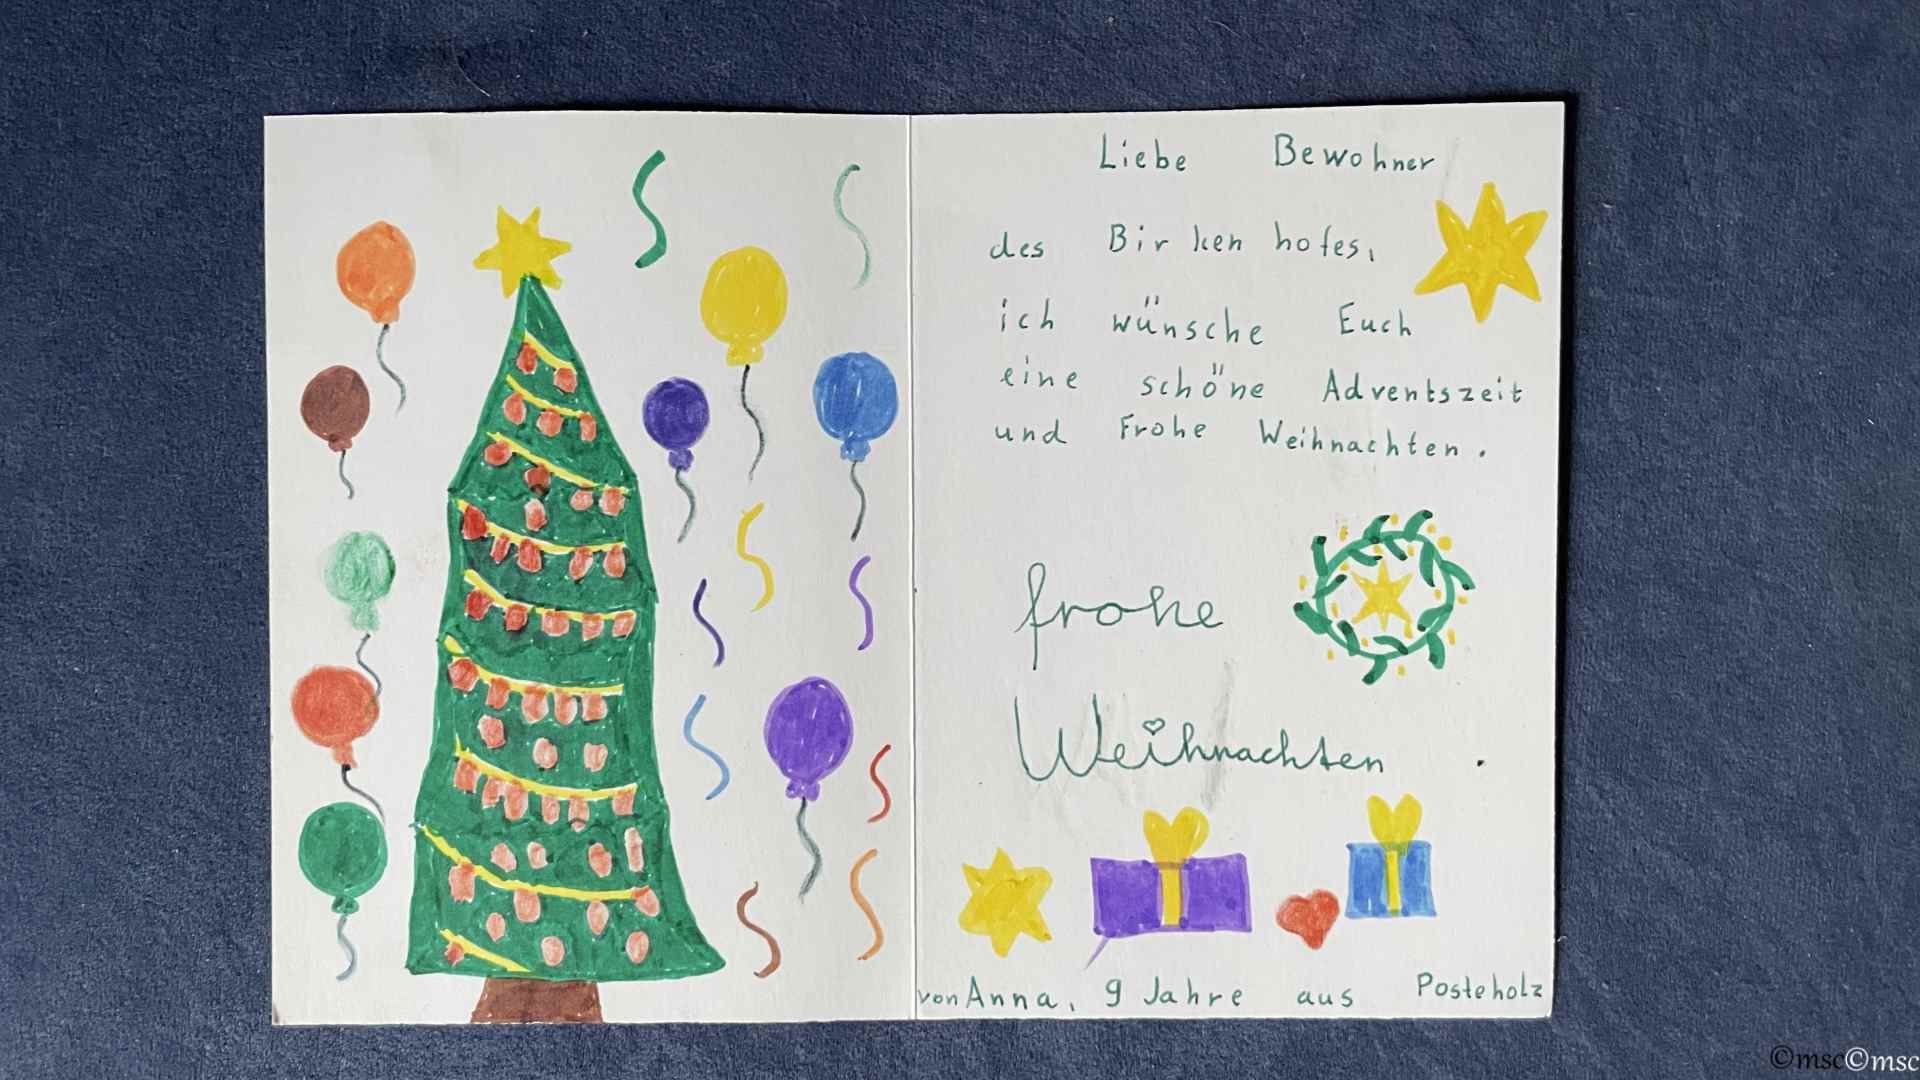 Liebe Bewohner
des Birkenhofes,
ich wünsche Euch
eine schöne Adventszeit
und Frohe Weihnachten.
frohe
Weihnachten .
von Anna, 9 Jahre aus Posteholz
©msc©msc